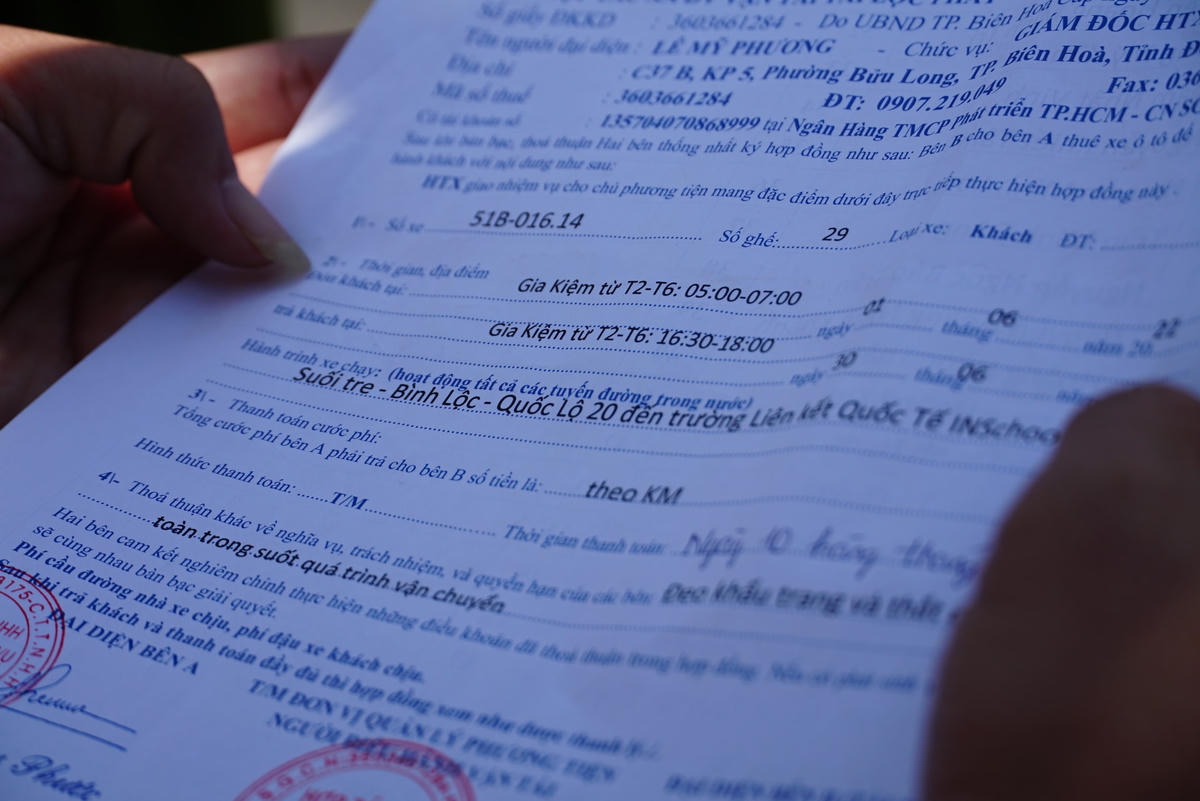 Số giấy ĐKKD : 3603661284 - Do UBND TP. Biên Hoà Cấp ngày
Tên người đại diện : LÊ MỸ PHƯƠNG - Chức vụ: GIÁM ĐỐC HTX
Địa chỉ : C37 B, KP 5, Phường Bửu Long, TP. Biên Hoà, Tỉnh Đ
Mã số thuế : 3603661284 ĐT: 0907.219.049 Fax: 036
Có tài khoản số : 135704070868999 tại Ngân Hàng TMCP Phát triển TP.HCM - CN SG
Sau khi bàn bạc, thoả thuận Hai bên thống nhất ký hợp đồng như sau: Bên B cho bên A thuê xe ô tô để
hành khách với nội dung như sau:
HTX giao nhiệm vụ cho chủ phương tiện mang đặc điểm dưới đây trực tiếp thực hiện hợp đồng này .
1\- Số xe 51B-016.14 Số ghế: 29 Loại xe: Khách ĐT:
2\- Thời gian, địa điểm
Đón khách tại: Gia Kiệm từ T2-T6: 05:00-07:00 ngày 01 tháng 06 năm 20 22
trả khách tại: Gia Kiệm từ T2-T6: 16:30-18:00 ngày 30 tháng 06
Hành trình xe chạy: (hoạt động tất cả các tuyến đường trong nước)
Suối tre - Bình Lộc - Quốc Lộ 20 đến trường Liên kết Quốc Tế INSchoo
3\- Thanh toán cước phí:
Tổng cước phí bên A phải trả cho bên B số tiền là: theo KM
Hình thức thanh toán: T/M Thời gian thanh toán: Ngày 10 hàng tháng
4\- Thoả thuận khác về nghĩa vụ, trách nhiệm, và quyền hạn của các bên: Đeo khẩu trang và thắt
toàn trong suốt quá trình vận chuyển
Hai bên cam kết nghiêm chỉnh thực hiện những điều khoản đã thoả thuận trong hợp đồng. Nếu có phát sinh
sẽ cùng nhau bàn bạc giải quyết.
Phí cầu đường nhà xe chịu, phí đậu xe khách chịu.
Sau khi trả khách và thanh toán đầy đủ thì hợp đồng xem như được thanh lý.
ĐẠI DIỆN BÊN A
T/M ĐƠN VỊ QUẢN LÝ PHƯƠNG TIỆN
Phước